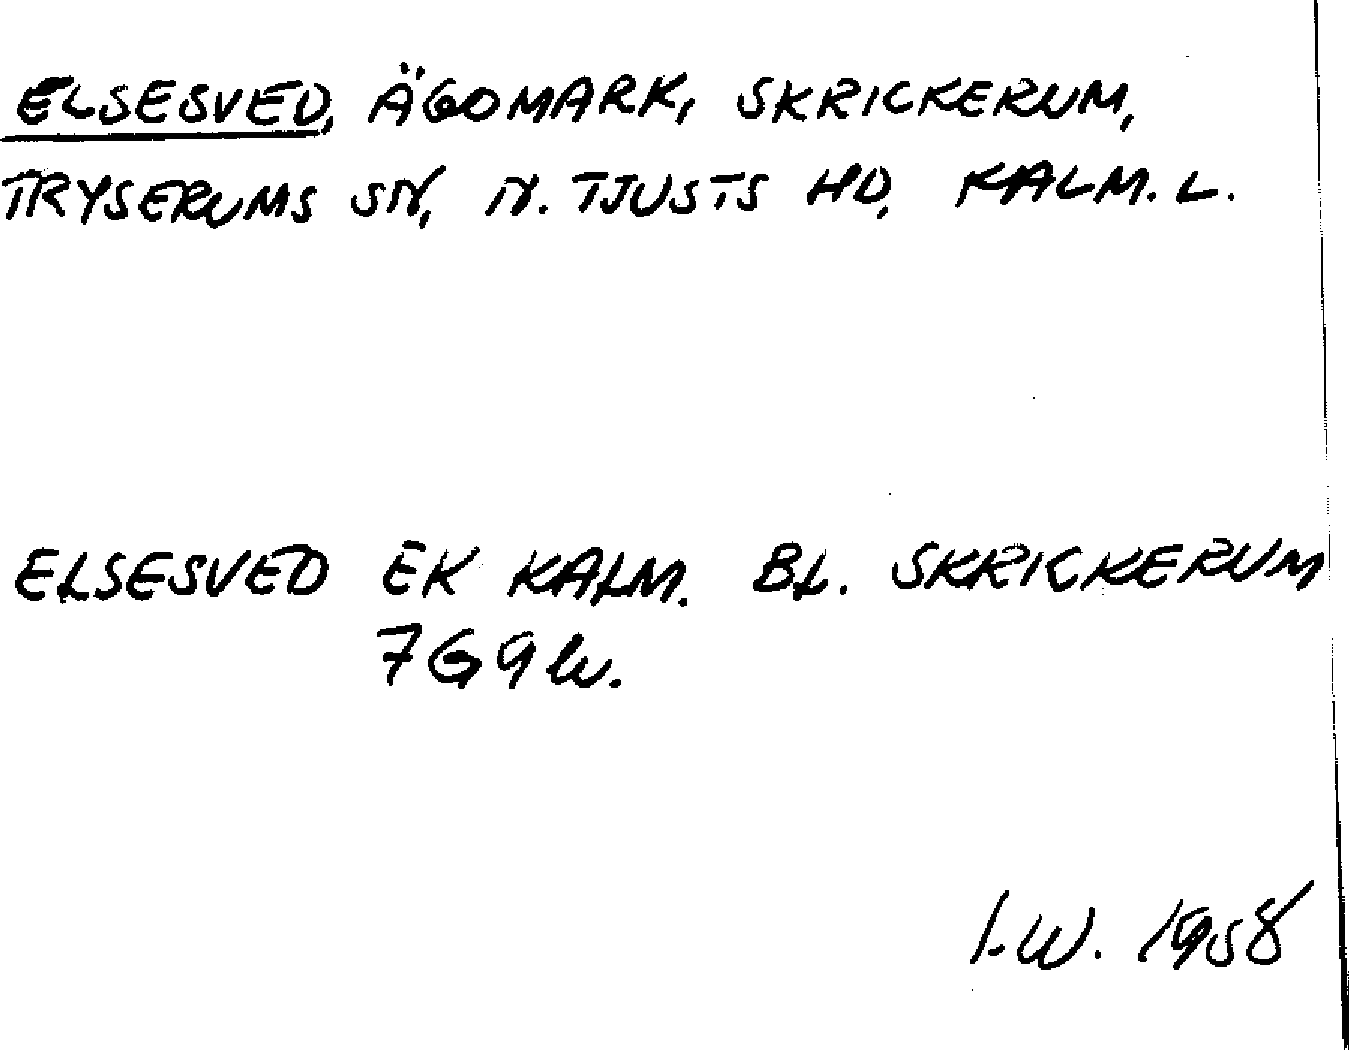 ELSESVED, ÄGOMARK, SKRICKERUM,
TRYSERUMS SN, N. TJUSTS HD, KALM. L.
ELSESVED EK KALM. BL. SKRICKERUM
7G9
I.W. 1958